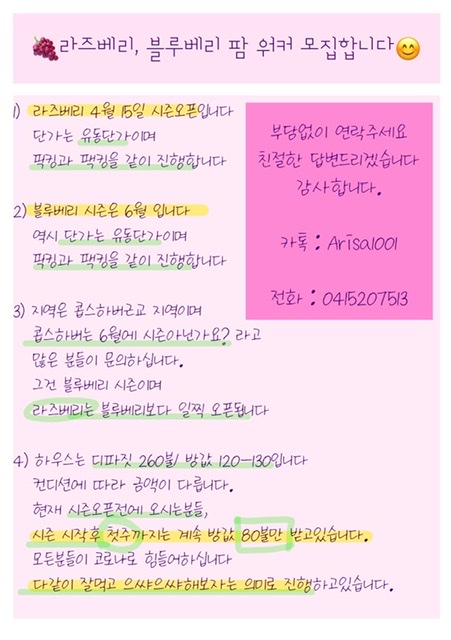 🍇라즈베리, 블루베리 팜 워커 모집합니다😊
1) 라즈베리 4월 15일 시즌오픈입니다
단가는 유동단가이며
픽킹과 팩킹을 같이 진행합니다
부담없이 연락주세요
친절한 답변드리겠습니다
감사합니다.
카톡 : Arisa1001
전화 : 0415207513
2) 블루베리 시즌은 6월 입니다
역시 단가는 유동단가이며
픽킹과 팩킹을 같이 진행합니다
3) 지역은 콥스하버근교 지역이며
콥스하버는 6월에 시즌아닌가요? 라고
많은 분들이 문의하십니다.
그건 블루베리 시즌이며
라즈베리는 블루베리보다 일찍 오픈됩니다
4) 하우스는 디파짓 260불/ 방값 120-130입니다
컨디션에 따라 금액이 다릅니다.
현재 시즌오픈전에 오시는분들,
시즌 시작후 첫주까지는 계속 방값 80불만 받고있습니다.
모든분들이 코로나로 힘들어하십니다
다같이 잘먹고 으쌰으쌰해보자는 의미로 진행하고있습니다.